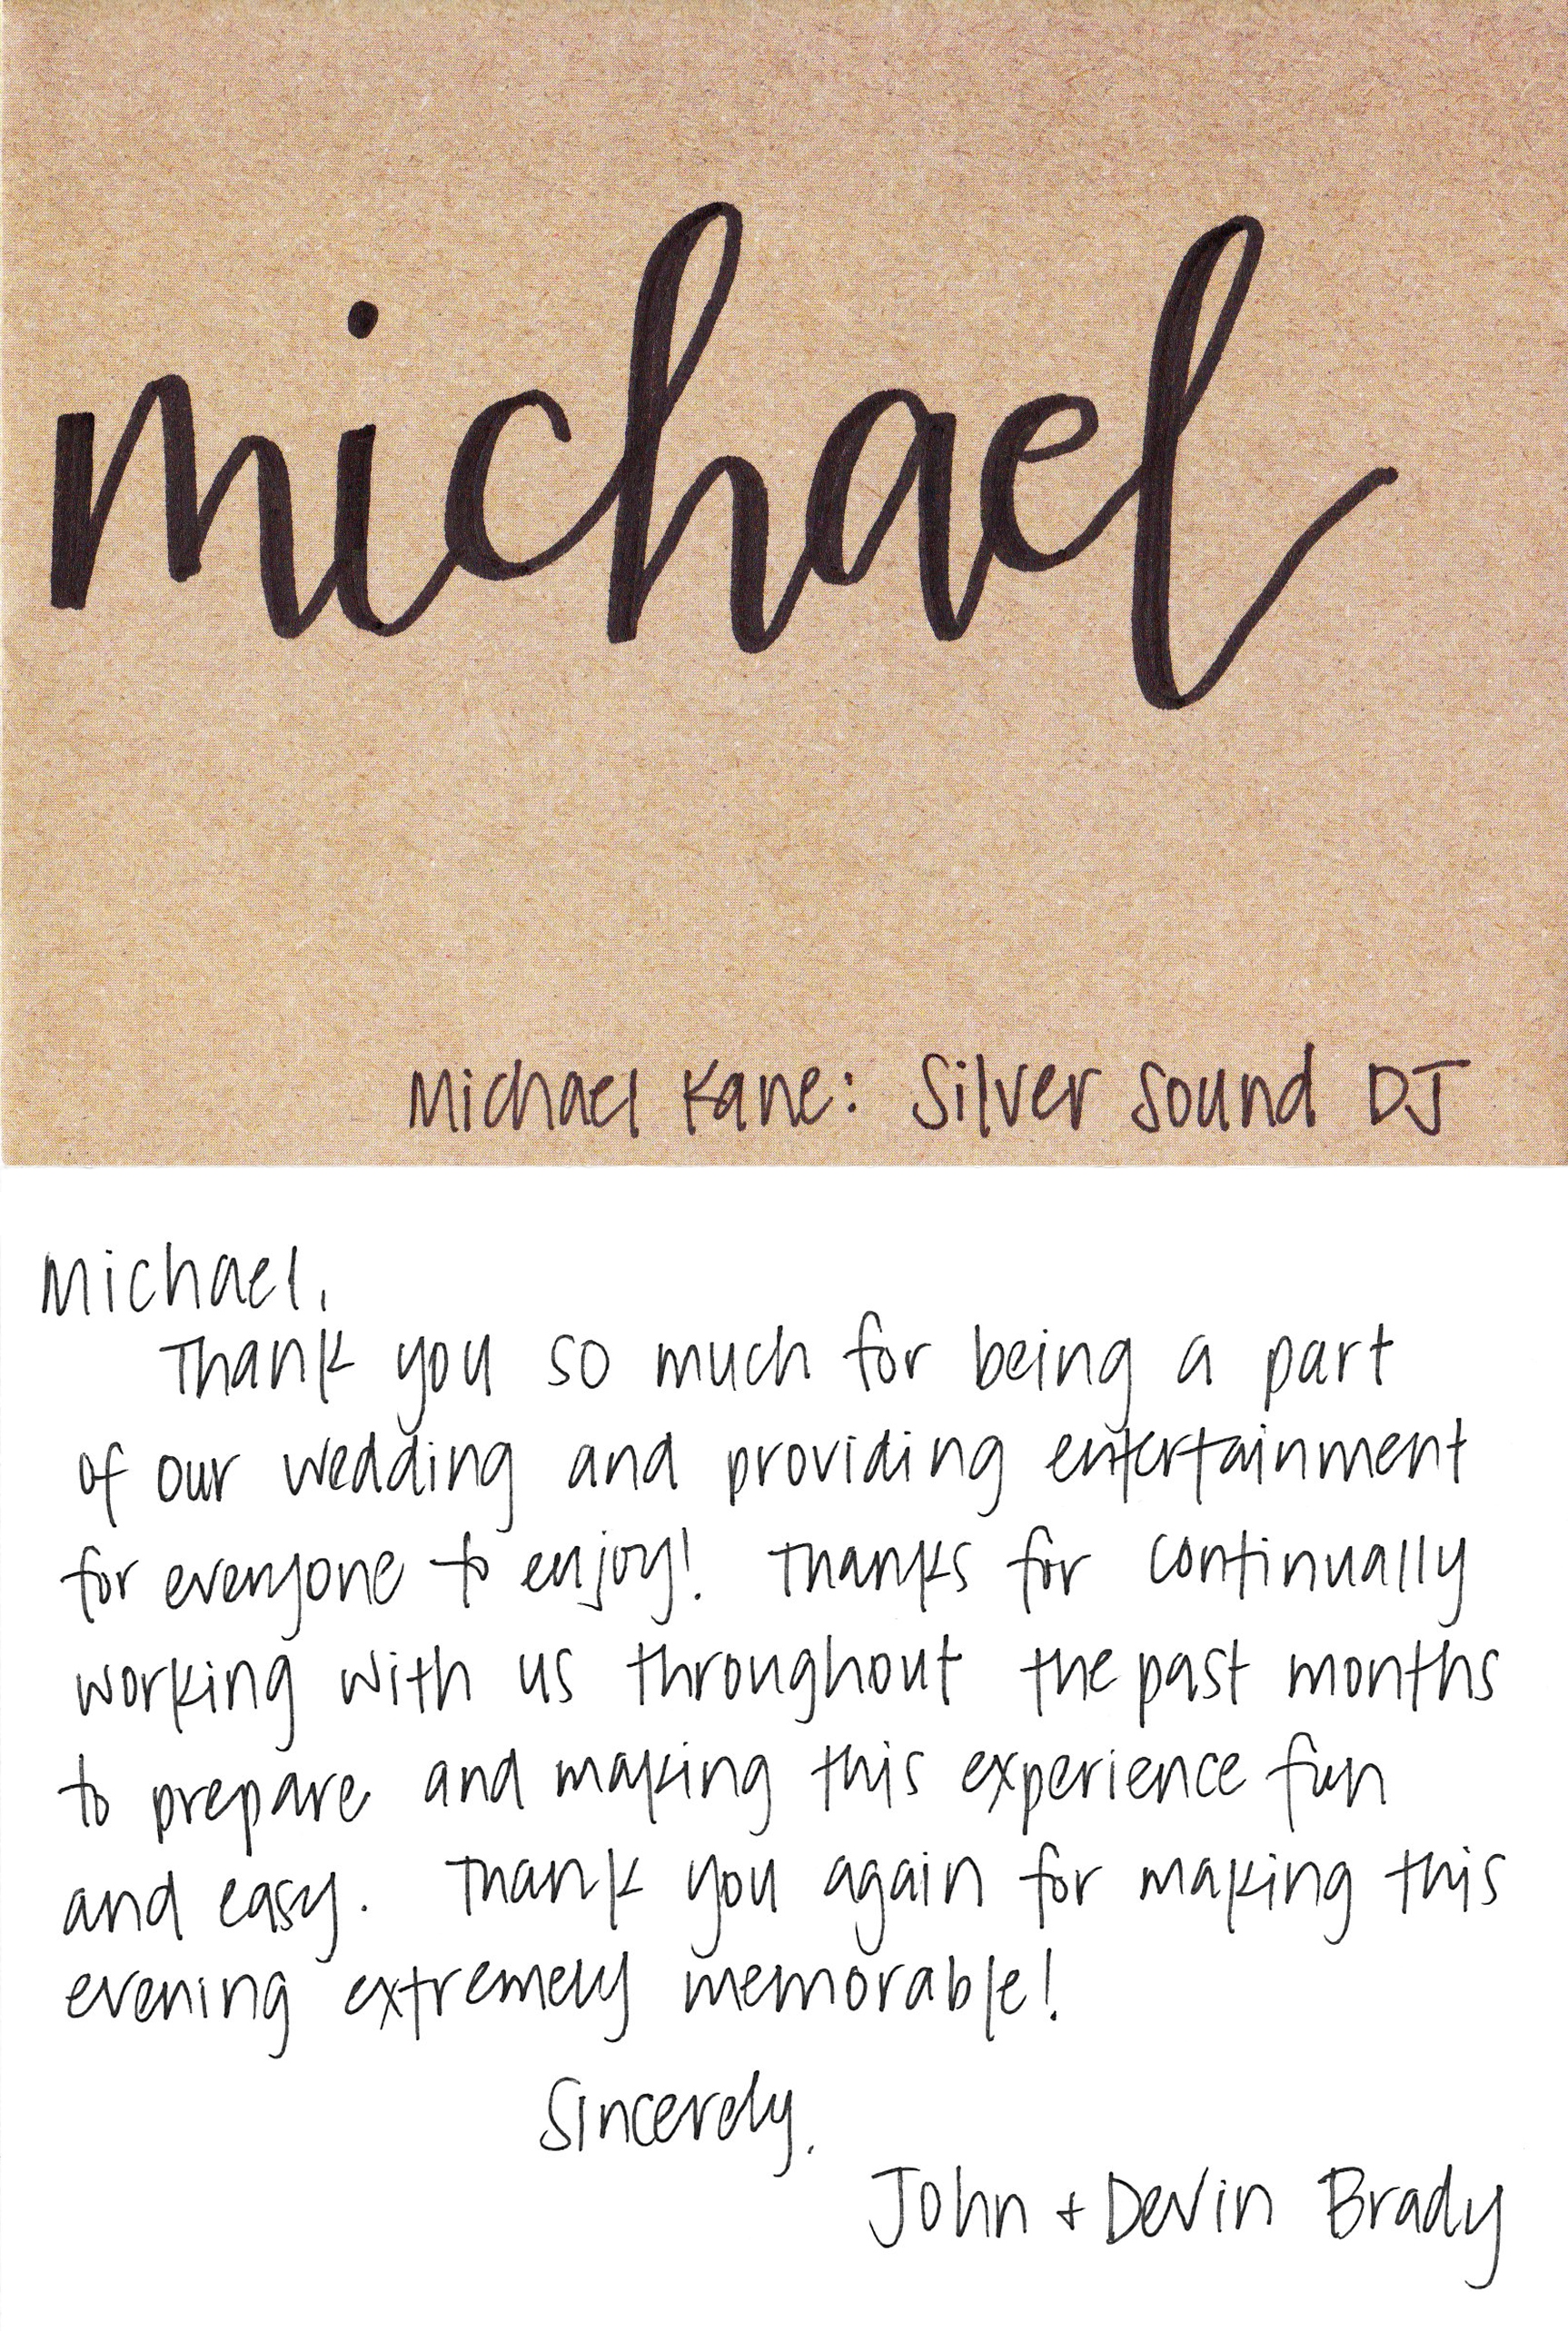 michael
Michael Kane: Silver Sound DJ
Michael,
Thank you so much for being a part
of our wedding and providing entertainment
for everyone to enjoy! Thanks for continually
working with us throughout the past months
to prepare and making this experience fun
and easy. Thank you again for making this
evening extremely memorable!
Sincerely,
John + Devin Brady